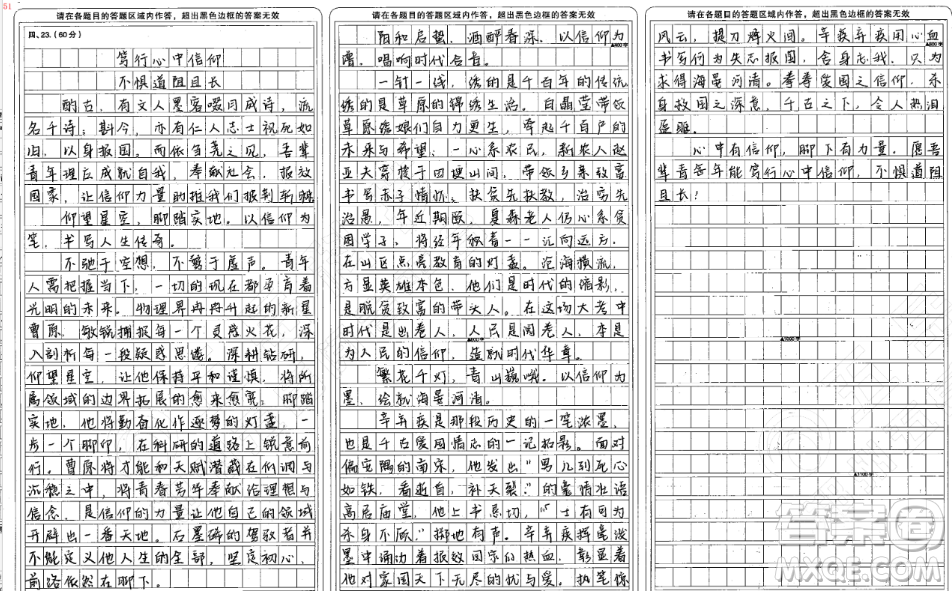 51
请在各题目的答题区域内作答，超出黑色边框的答案无效
四、23.(60分)
笃行心中信仰
不惧道阻且长
酌古，有文人墨客啜月成诗，流
名千诗；斟今，亦有仁人志士视死如
归，以身报国。而依刍荛之见，吾辈
青年理应成就自我，奉献社会，报效
国家，让信仰力量助推我们报到
仰望星空，脚踏实地。以信仰为
笔，书写人生传奇。
不驰于空想，不骛于虚声。青年
人需把握当下，一切的现在都孕育着
光明的未来。物理界冉冉升起的新星
曹原，敏锐捕捉每一个灵感火花，深
入剖析每一段疑惑思绪。深耕钻研，
仰望星空，让他保持平和谨慎，将所
属领域的边界拓展的愈来愈宽；脚踏
实地，他将勤奋化作逐梦的灯盏，一
步一个脚印，在科研的道路上锐意前
行。曹原将才能和天赋潜藏在低调与
沉稳之中，将青春芳华奉献给理想与
信念，是信仰的力量让他自己的领域
开辟出一番天地。石墨烯的驾驭者并
不能定义他人生的全部，坚定初心，
前路依然在脚下。
请在各题目的答题区域内作答，超出黑色边框的答案无效
阳和启蛰，酒酽春深。以信仰为
谱，唱响时代合音。
一针一线，绣的是千百年的传统，
绣的是草原的锦绣生活。白晶莹带领
草原绣娘们自力更生，牵起千百户的
未来与希望。一心系农民，新农人赵
亚夫穿梭于田埂山间，带领乡亲致富
书写赤子情怀。扶贫先扶教，治穷先
治愚，年近期颐，是森老人仍心系贫
困学子，将经年积蓄一一汇向远方，
在山区点亮教育的灯盏。沧海横流，
方显英雄本色，他们是时代的缩影，
是脱贫致富的带头人。在这场大考中
时代是出卷人，人民是阅卷人，本是
为人民的信仰，造就时代华章。
繁花千灯，青山巍峨。以信仰为
墨，绘就海晏河清。
辛弃疾是那段历史的一笔浓墨，
也是千古爱国情志的一记拓影。面对
偏安隅的南宋，他发出“男儿到死心
如铁，看逝自，补天裂”的豪情壮语
高居庙堂，他上书恳切，“士有可为
杀身不顾”掷地有声。辛弃疾挥毫泼
墨中涌动着报效国家的热血，彰显着
他对家国天下无尽的忧与爱。执笔惊
请在各题目的答题区域内作答，超出黑色边框的答案无效
风云，提刀踏火间。辛弃疾用心血
书写何为矢志报国，舍身忘我，只为
求得海晏河清。拳拳爱国之信仰，杀
身救国之深意，千古之下，令人热泪
盈眶。
心中有信仰，脚下有力量，愿吾
辈青年能笃行心中信仰，不惧道阻
且长！
答案圈
MXQE.COM